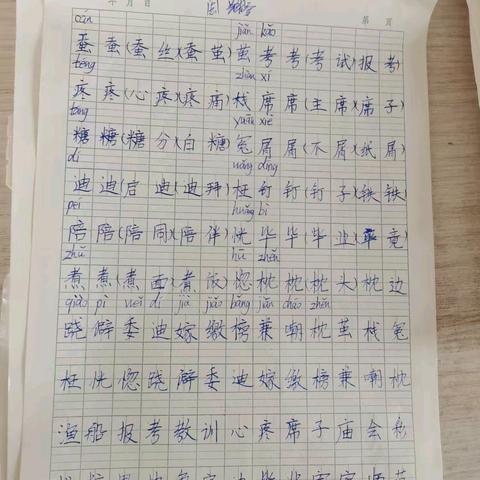 年 月 日 第 页
cán jiǎn kǎo
蚕 蚕(蚕 丝)(蚕 茧)茧 考 考(考 试)报 考)
téng zhàn xí
疼 疼(心 疼)(疼 痛)栈 席 席(主 席)(席 子)
táng yuān xiè
糖 糖(糖 分)(白 糖)冤 屑 屑(不 屑)(纸 屑)
dí wǎng dīng
迪 迪(启 迪)(迪 拜)枉 钉 钉(钉 子)(铁 铁)
péi huǎng bì
陪 陪(陪 同)(陪 伴)恍 毕 毕(毕 业)(毕 竟)
zhǔ hū zhěn
煮 煮(煮 面)(煮 饭)惚 枕 枕(枕 头)枕 边
qiāo pì wěi dí jià jiǎo bǎng jiān cháo zhěn
跷 僻 委 迪 嫁 缴 榜 兼 嘲 枕 茧 栈 冤
枉 恍 惚 跷 僻 委 迪 嫁 缴 榜 兼 嘲 枕
渔 船 报 考 教 训 心 疼 席 子 庙 会